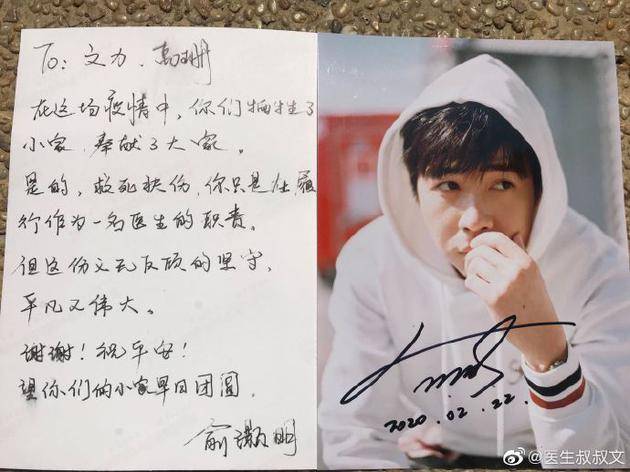 To: 文力、高珊
在这场疫情中，你们牺牲了
小家，奉献了大家。
是的，救死扶伤，你只是在履
行作为一名医生的职责。
但这份义无反顾的坚守，
平凡又伟大。
谢谢！祝平安！
望你们的小家早日团圆。
俞灏明
2020.02.22.
@医生叔叔文